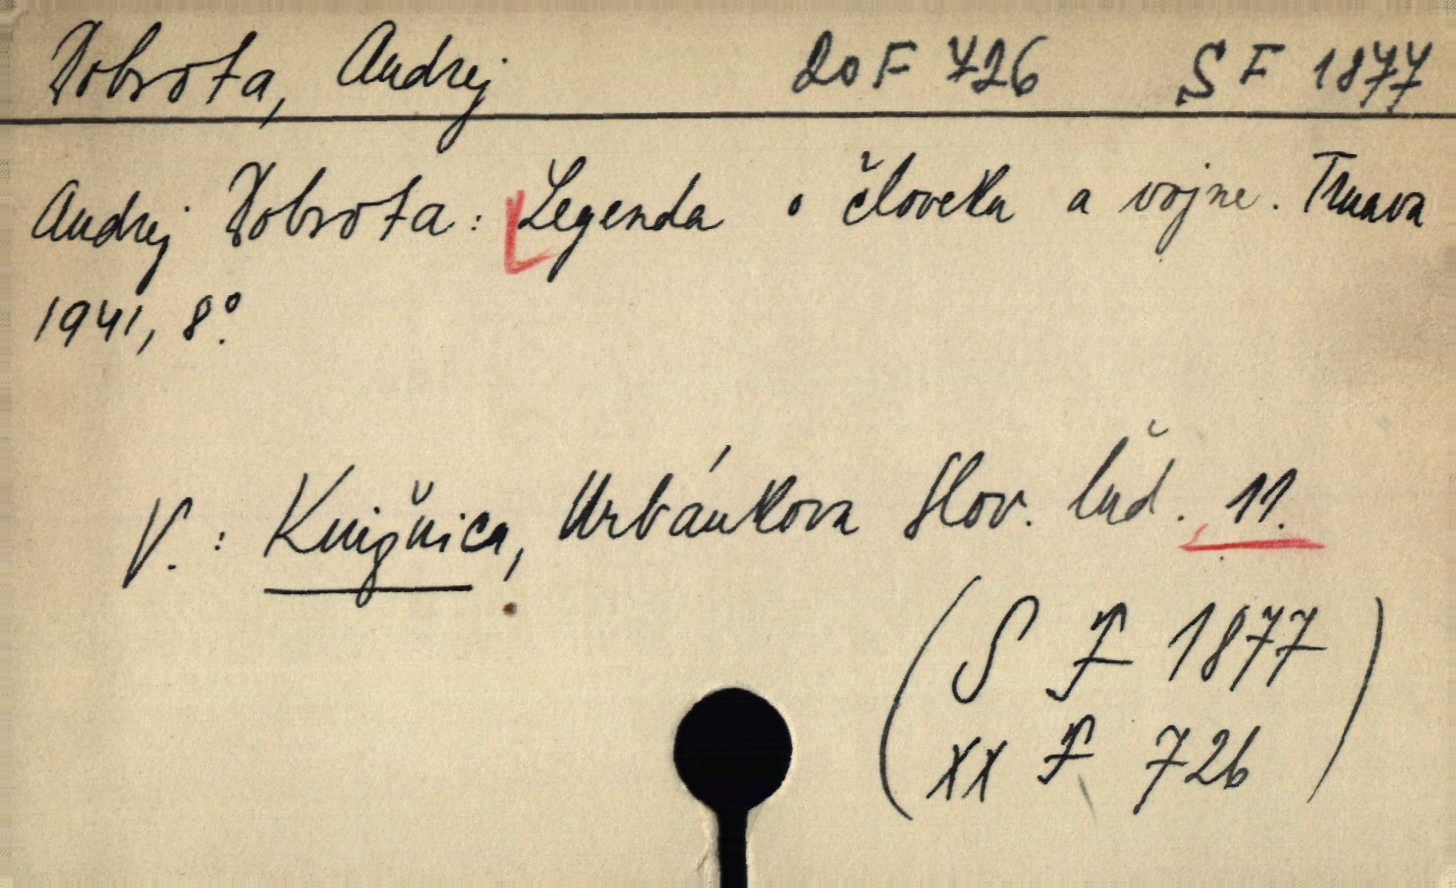 Dobrota, Andrej 20 F 726 S F 1877
Andrej Dobrota: Legenda o človeku a vojne. Trnava
1941, 8°.
V.: Knižnica, Urbánkova Slov. ľud. 11.
(S F 1877
XX F 726)